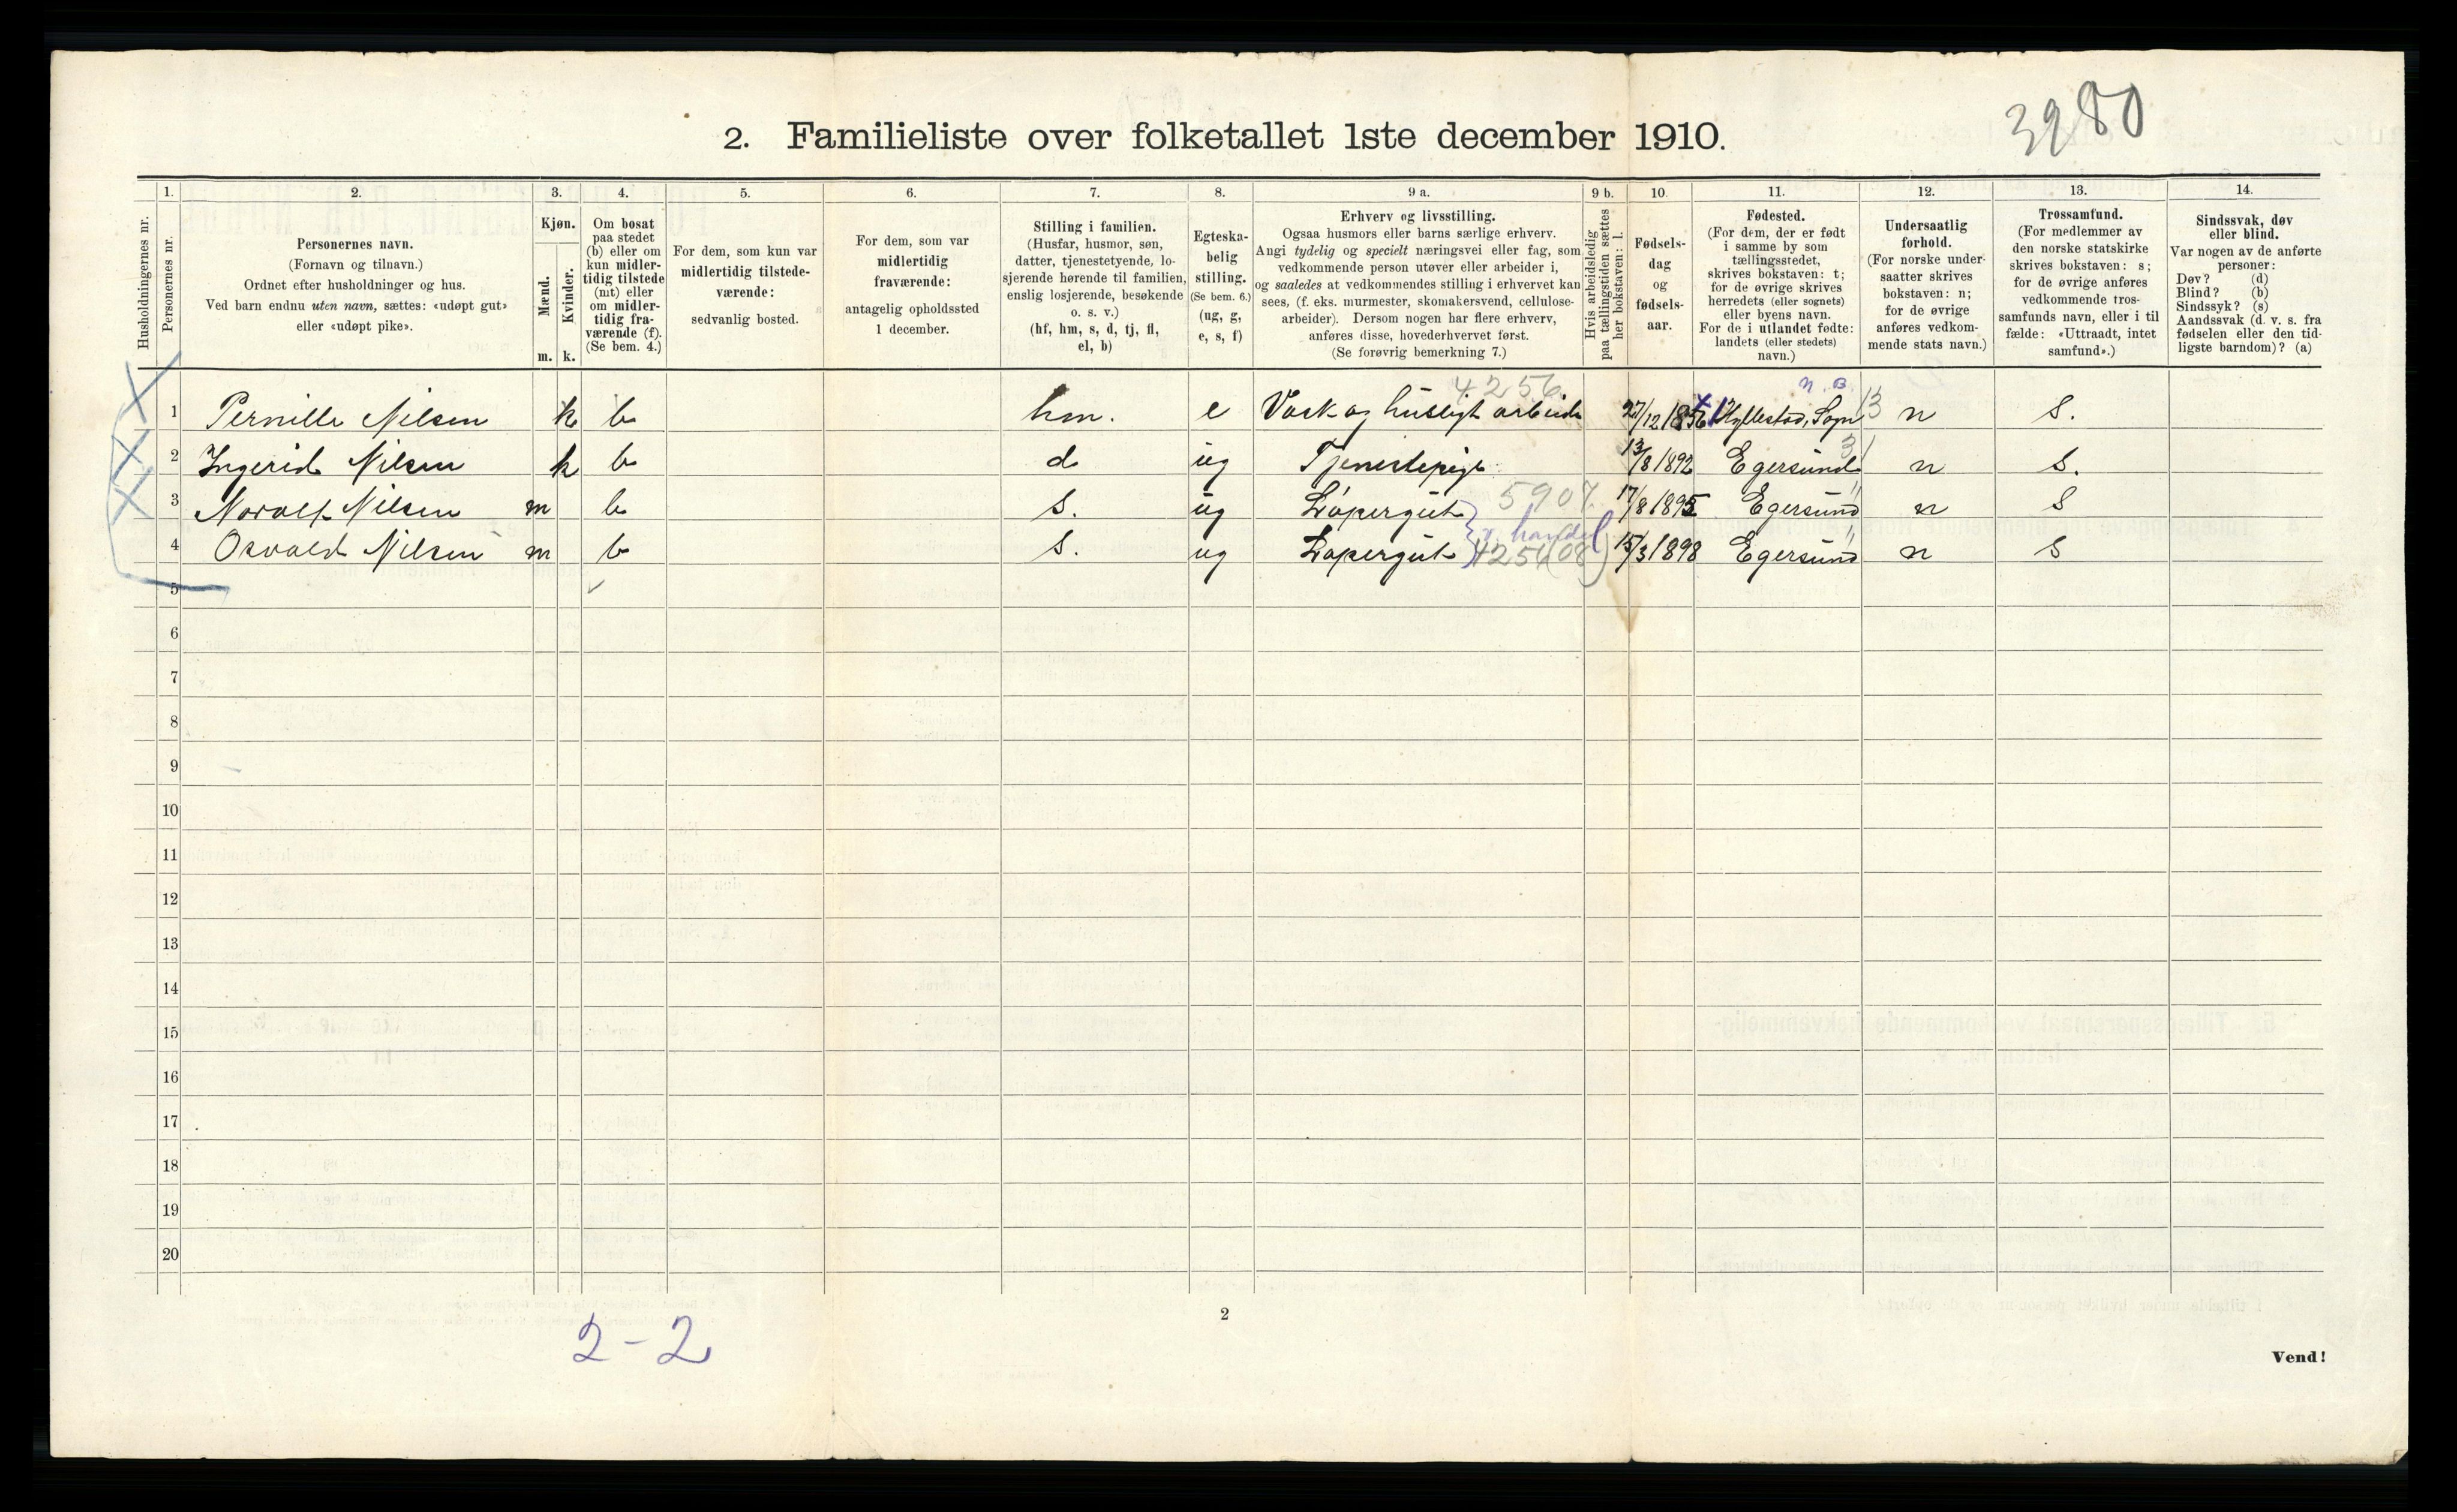 3980
2. Familieliste over folketallet 1ste december 1910.
Husholdningernes nr.
1.
Personernes nr.
2.
Personernes navn.
(Fornavn og tilnavn.)
Ordnet efter husholdninger og hus.
Ved barn endnu uten navn, sættes: «udøpt gut»
eller «udøpt pike».
3.
Kjøn.
Mænd.
Kvinder.
m. k.
4.
Om bosat
paa stedet
(b) eller om
kun midler-
tidig tilstede
(mt) eller
om midler-
tidig fra-
værende (f).
(Se bem. 4.)
5.
For dem, som kun var
midlertidig tilstede-
værende:
sedvanlig bosted.
6.
For dem, som var
midlertidig
fraværende:
antagelig opholdssted
1 december.
7.
Stilling i familien.
(Husfar, husmor, søn,
datter, tjenestetyende, lo-
sjerende hørende til familien,
enslig losjerende, besøkende
o. s. v.)
(hf, hm, s, d, tj, fl,
el, b)
8.
Egteska-
belig
stilling.
(Se bem. 6.)
(ug, g,
e, s, f)
9 a.
Erhverv og livsstilling.
Ogsaa husmors eller barns særlige erhverv.
Angi tydelig og specielt næringsvei eller fag, som
vedkommende person utøver eller arbeider i,
og saaledes at vedkommendes stilling i erhvervet kan
sees, (f. eks. murmester, skomakersvend, cellulose-
arbeider). Dersom nogen har flere erhverv,
anføres disse, hovederhvervet først.
(Se forøvrig bemerkning 7.)
9 b.
Hvis arbeidsledig
paa tællingstiden sættes
her bokstaven: l.
10.
Fødsels-
dag
og
fødsels-
aar.
11.
Fødested.
(For dem, der er født
i samme by som
tællingsstedet,
skrives bokstaven: t;
for de øvrige skrives
herredets (eller sognets)
eller byens navn.
For de i utlandet fødte:
landets (eller stedets)
navn.)
12.
Undersaatlig
forhold.
(For norske under-
saatter skrives
bokstaven: n;
for de øvrige
anføres vedkom-
mende stats navn.)
13.
Trossamfund.
(For medlemmer av
den norske statskirke
skrives bokstaven: s;
for de øvrige anføres
vedkommende tros-
samfunds navn, eller i til
fælde: «Uttraadt, intet
samfund».)
14.
Sindssvak, døv
eller blind.
Var nogen av de anførte
personer:
Døv? (d)
Blind? (b)
Sindssyk? (s)
Aandssvak (d. v. s. fra
fødselen eller den tid-
ligste barndom)? (a)
4256 n. B.
1 Pernille Nilsen k b hm. e Vask og husligt arbeide 27/12 1856 Hyllestad, Sogn 13 n S.
2 Ingerid Nilsen k b d ug Tjenestepige 13/8 1892 Egersund n S.
5907.
3 Norolf Nilsen m b S. ug Løpergut 17/8 1895 Egersund n S
v. handel
4 Osvald Nilsen m b S. ug Løpergut 4256(08) 15/3 1898 Egersund n S
5
6
7
8
9
10
11
12
13
14
15
16
17
18
19
20
2
2-2
Vend!